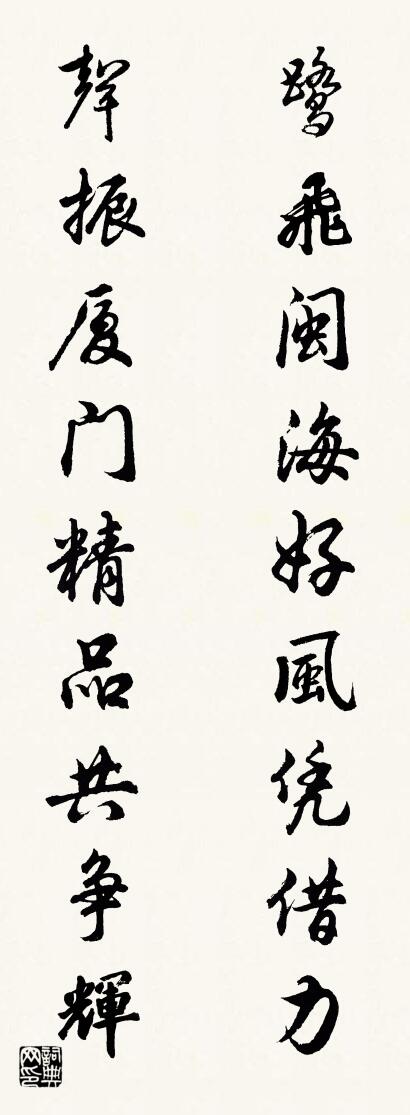 鹭飛闽海好風凭借力
聲振厦门精品共争輝
詞典网印